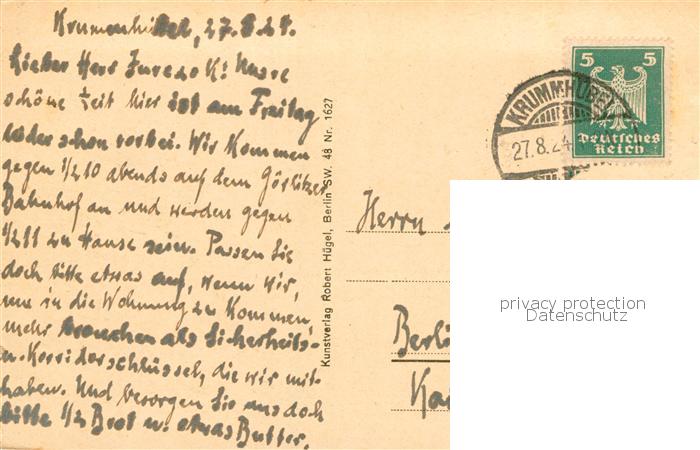 Krummhübel, 27.8.24.
Lieber Herr K! Unsere
schöne Zeit hier ist am Freitag
leider schon vorbei. Wir kommen
gegen 1/2 10 abends auf dem Görlitzer
Bahnhof an und werden gegen
1/2 11 zu Hause sein. Passen Sie
doch bitte etwas auf, wenn wir,
um in die Wohnung zu kommen,
mehr brauchen als Sicherheits-
u. Korridorschlüssel, die wir mit-
haben. Und besorgen Sie uns doch
bitte 1/2 Brot u. etwas Butter.
Kunstverlag Robert Hügel, Berlin SW. 48 Nr. 1627
5 5
Deutsches
Reich
KRUMMHÜBEL
27.8.24
Herrn
Berli
privacy protection
Datenschutz